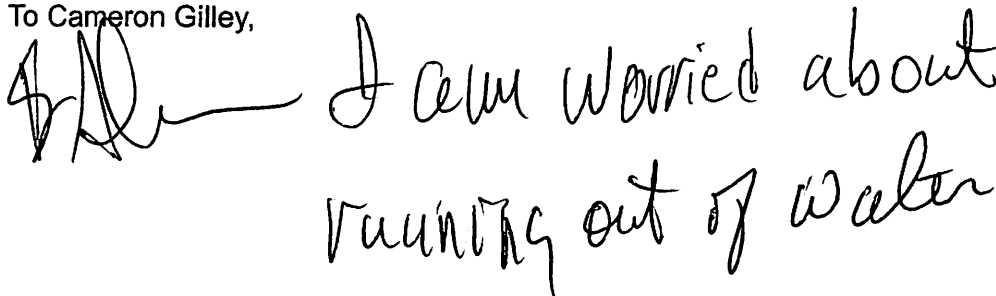 To Cameron Gilley,
I am worried about
running out of water